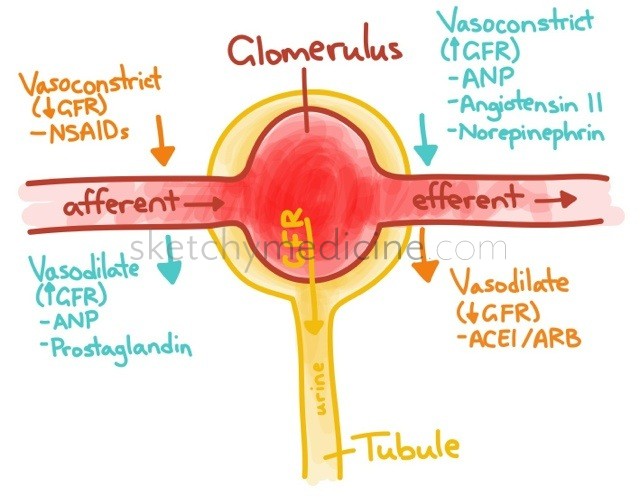 Glomerulus
Vasoconstrict
(↓GFR)
- NSAIDs
Vasoconstrict
(↑GFR)
- ANP
- Angiotensin II
- Norepinephrin
afferent →
efferent →
GFR
sketchymedicine.com
Vasodilate
(↑GFR)
- ANP
- Prostaglandin
Vasodilate
(↓GFR)
- ACEI/ARB
urine
Tubule